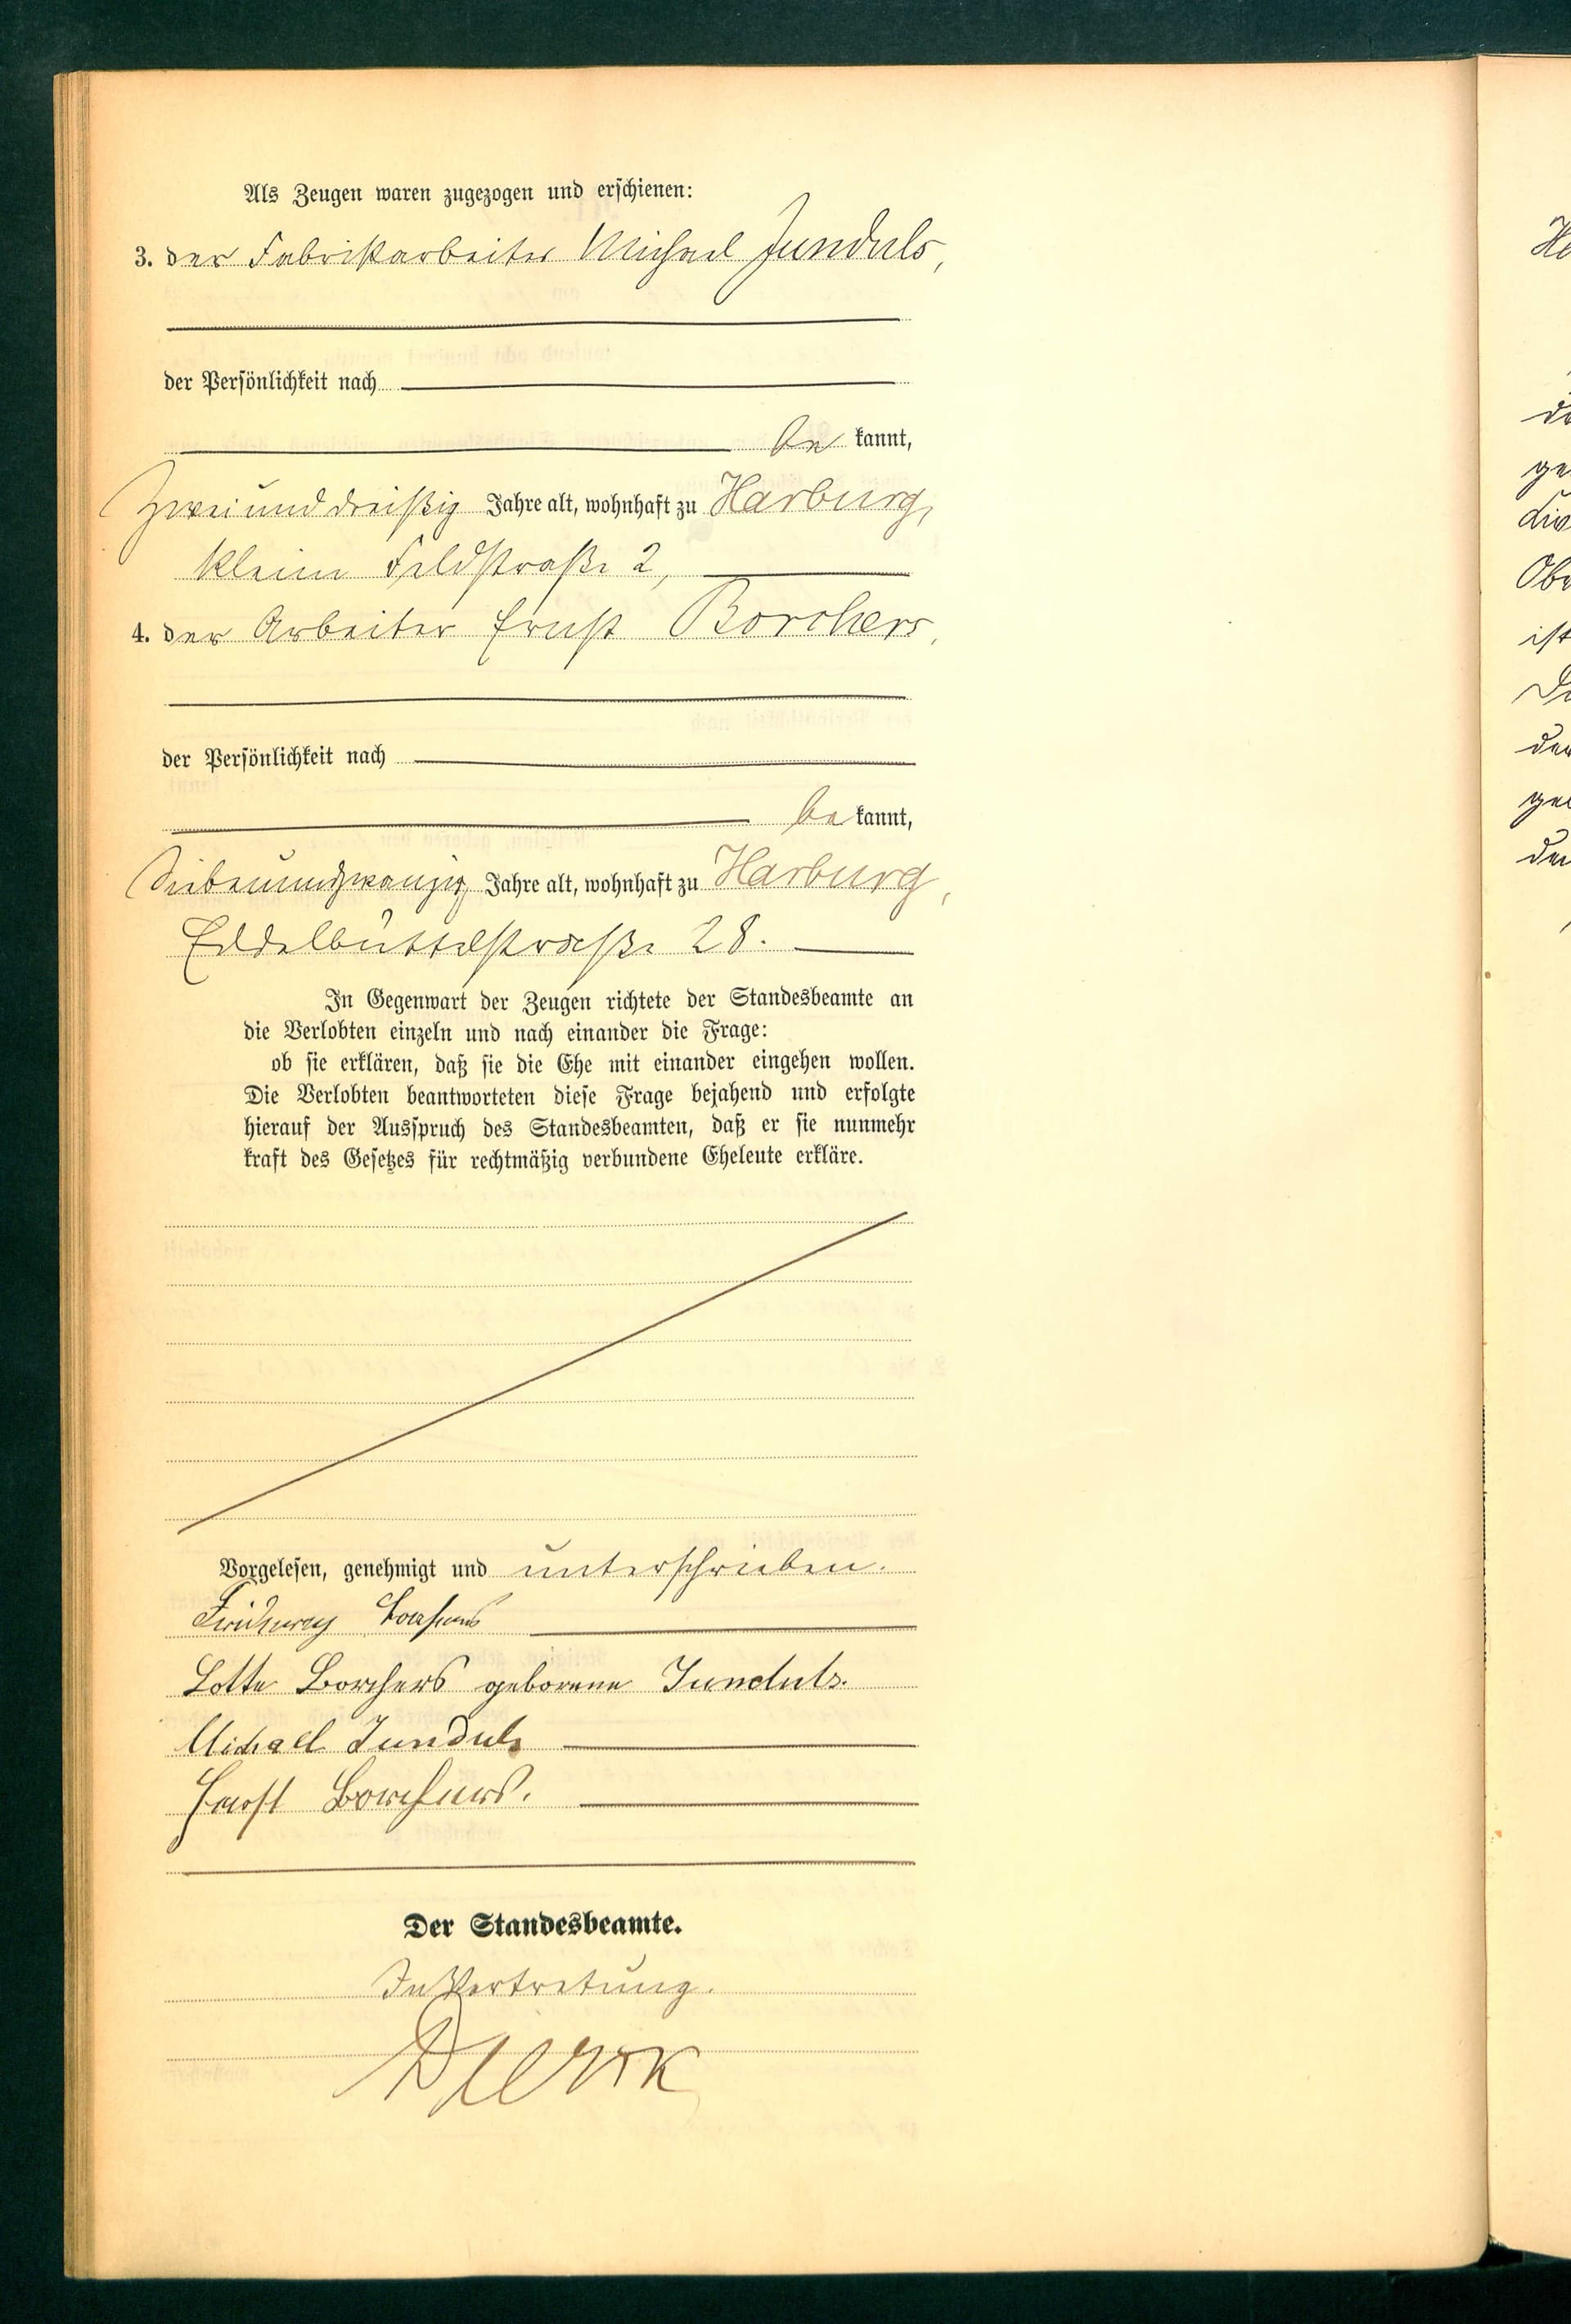 Als Zeugen waren zugezogen und erschienen:
3. der Fabrikarbeiter Michael Junduls,
der Persönlichkeit nach
be kannt,
zweiunddreißig Jahre alt, wohnhaft zu Harburg,
kleine Feldstraße 2,
4. der Arbeiter Ernst Borchers,
der Persönlichkeit nach
be kannt,
siebenundzwanzig Jahre alt, wohnhaft zu Harburg,
Eddelbüttelstraße 28.
In Gegenwart der Zeugen richtete der Standesbeamte an
die Verlobten einzeln und nach einander die Frage:
ob sie erklären, daß sie die Ehe mit einander eingehen wollen.
Die Verlobten beantworteten diese Frage bejahend und erfolgte
hierauf der Ausspruch des Standesbeamten, daß er sie nunmehr
kraft des Gesetzes für rechtmäßig verbundene Eheleute erkläre.
Vorgelesen, genehmigt und unterschrieben.
Borchers
Lotte Borchers geborene Junduls.
Michael Junduls
Ernst Borchers.
Der Standesbeamte.
In Vertretung.